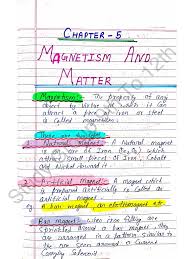 CHAPTER - 5
MAGNETISM AND
MATTER
Magnetism: The property of any
object by virtue of which it can
attract a piece of iron or steel
is called magnetism.
There are
1. Natural Magnet: A Natural magnet
is an ore of Iron (Fe3O4) which
attract small pieces of Iron, Cobalt
and Nickel towards it.
2. Artificial Magnet: A magnet which
is prepared artificially is called an
artificial magnet.
A bar magnet, an electromagnet etc.
Bar magnet: when iron filings are
sprinkled around a bar magnet they
are arranged in a pattern similar to
the one seen around a current
carrying solenoid.